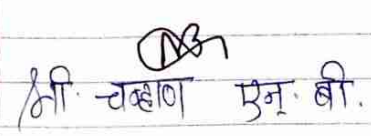 श्री. चव्हाण एन. बी.